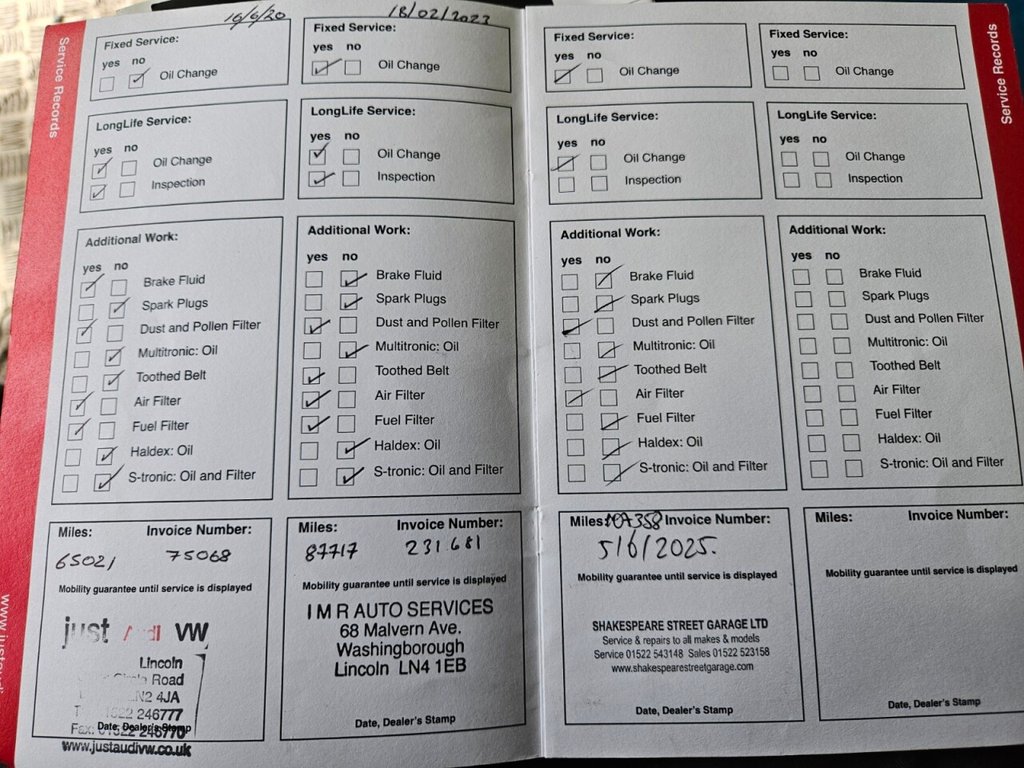 Service Records
16/6/20
Fixed Service:
yes no
Oil Change
LongLife Service:
yes no
Oil Change
Inspection
Additional Work:
yes no
Brake Fluid
Spark Plugs
Dust and Pollen Filter
Multitronic: Oil
Toothed Belt
Air Filter
Fuel Filter
Haldex: Oil
S-tronic: Oil and Filter
Miles: Invoice Number:
65021 75068
Mobility guarantee until service is displayed
just Audi VW
Lincoln
Road
LN2 4JA
01522 246777
Date, Dealer's Stamp
Fax: 01522 246770
www.justaudivw.co.uk
18/02/2023
Fixed Service:
yes no
Oil Change
LongLife Service:
yes no
Oil Change
Inspection
Additional Work:
yes no
Brake Fluid
Spark Plugs
Dust and Pollen Filter
Multitronic: Oil
Toothed Belt
Air Filter
Fuel Filter
Haldex: Oil
S-tronic: Oil and Filter
Miles: Invoice Number:
87717 231681
Mobility guarantee until service is displayed
I M R AUTO SERVICES
68 Malvern Ave.
Washingborough
Lincoln LN4 1EB
Date, Dealer's Stamp
Fixed Service:
yes no
Oil Change
LongLife Service:
yes no
Oil Change
Inspection
Additional Work:
yes no
Brake Fluid
Spark Plugs
Dust and Pollen Filter
Multitronic: Oil
Toothed Belt
Air Filter
Fuel Filter
Haldex: Oil
S-tronic: Oil and Filter
Miles: 107358 Invoice Number:
5/6/2025.
Mobility guarantee until service is displayed
SHAKESPEARE STREET GARAGE LTD
Service & repairs to all makes & models
Service 01522 543148 Sales 01522 523158
www.shakespearestreetgarage.com
Date, Dealer's Stamp
Fixed Service:
yes no
Oil Change
LongLife Service:
yes no
Oil Change
Inspection
Additional Work:
yes no
Brake Fluid
Spark Plugs
Dust and Pollen Filter
Multitronic: Oil
Toothed Belt
Air Filter
Fuel Filter
Haldex: Oil
S-tronic: Oil and Filter
Miles: Invoice Number:
Mobility guarantee until service is displayed
Date, Dealer's Stamp
Service Records